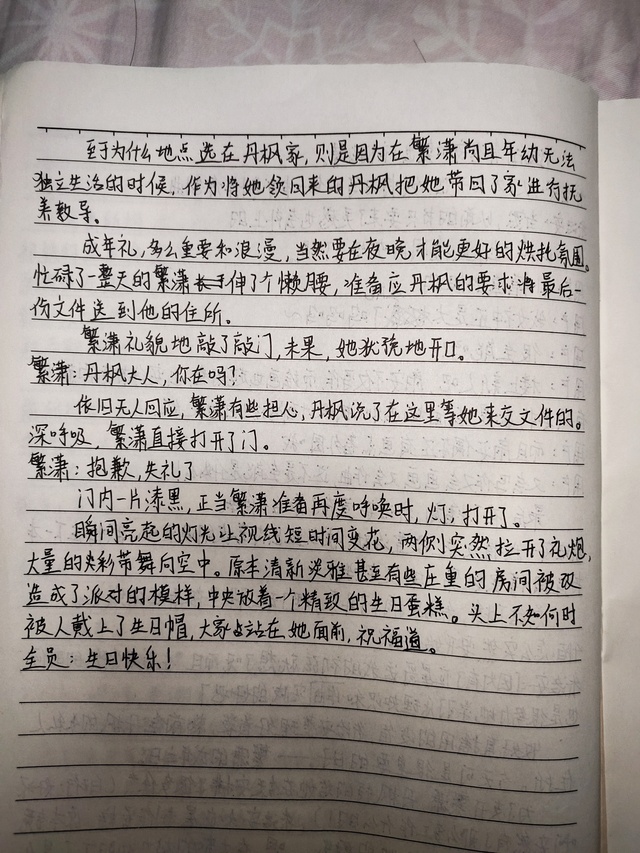 至于为什么地点选在丹枫家,则是因为在繁潇尚且年幼无法
独立生活的时候,作为将她领回来的丹枫把她带回了家进行抚
养教导。
成年礼,多么重要和浪漫,当然要在夜晚才能更好的烘托氛围。
忙碌了一整天的繁潇伸了个懒腰,准备应丹枫的要求将最后一
份文件送到他的住所。
繁潇礼貌地敲了敲门,未果,她犹豫地开口。
繁潇:丹枫大人,你在吗?
依旧无人回应,繁潇有些担心,丹枫说了在这里等她来交文件的。
深呼吸,繁潇直接打开了门。
繁潇:抱歉,失礼了
门内一片漆黑,正当繁潇准备再度呼唤时,灯,打开了。
瞬间亮起的灯光让视线短时间变花,两侧突然拉开了礼炮,
大量的彩带舞向空中。原本清新淡雅甚至有些庄重的房间被改
造成了派对的模样,中央放着一个精致的生日蛋糕。头上不知何时
被人戴上了生日帽,大家站在她面前,祝福道。
全员:生日快乐!